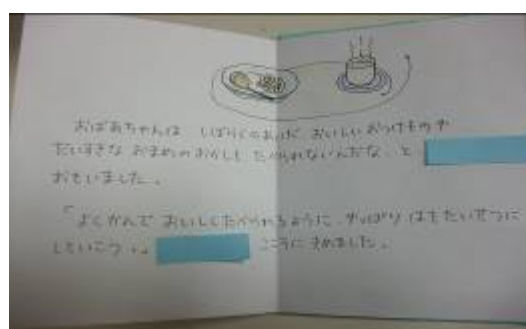 おばあちゃんは しばらくのあいだ おいしいおつけものや
だいすきな おまめのおかしも たべられないんだな、と
おもいました。
「よくかんで おいしくたべられるように、やっぱり はをたいせつに
していこう」。 こころに きめました。